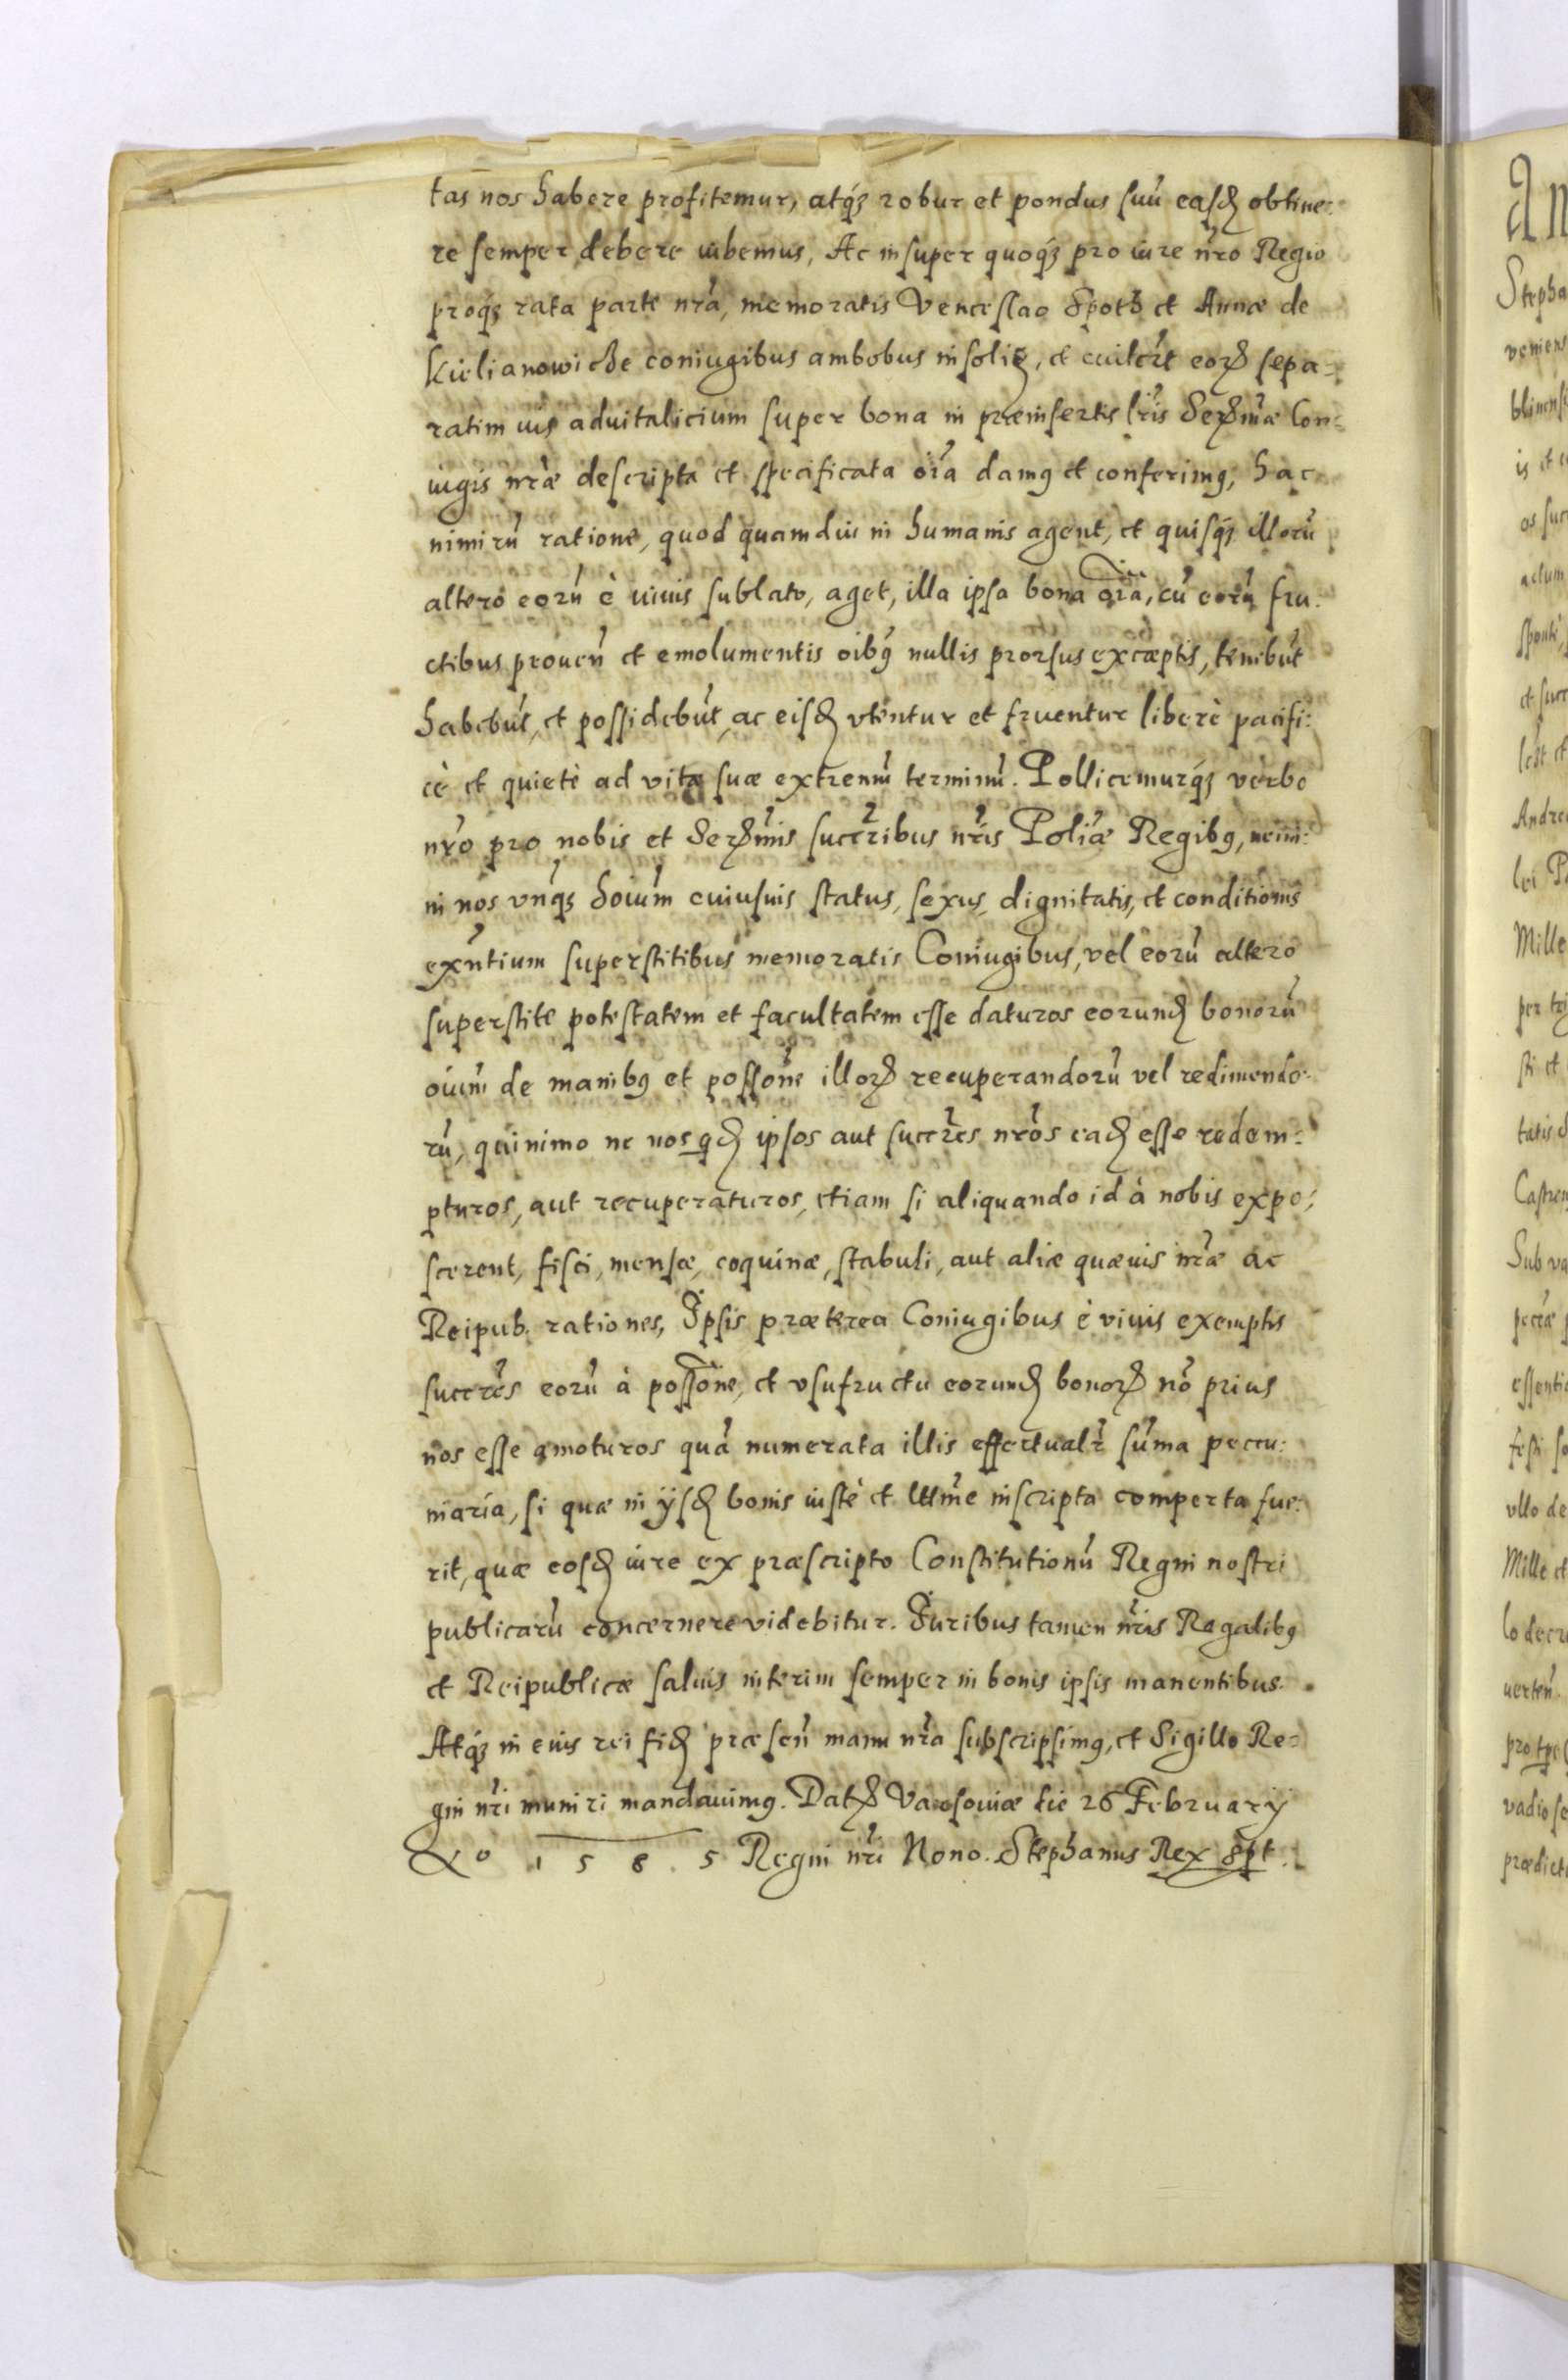 tas nos habere profitemur, atq́ꝫ robur et pondus suū easꝺ obtine:
re semper debere iubemus, Ac insuper quoq́ꝫ pro iure nr̃o Regio
proq́ꝫ rata parte nr̃a, memoratis Venceslao et Annæ de
Kielianowicze coniugibus ambobus in et eorꝝ sepa=
ratim ius aduitalicium super bona in præinsertis lr̃is Serꝝm̃æ Con=
iugis nr̃æ descripta et specificata oĩa damꝰ et conferimꝰ, hac
nimirū ratione, quod quamdiu in humanis agent, et quisq́ꝫ illorū
altero eorū è viuis sublato, aget, illa ipsa bona oĩa, cū eorū fru:
ctibus prouen̄ et emolumentis oĩbꝰ nullis prorsus exceptis, tenebūt
habebūt, et possidebūt, ac eisꝺ vtentur et fruentur liberè pacifi:
cè et quietè ad vitæ suæ extremū terminū. Pollicemurq́ꝫ verbo
nr̃o pro nobis et Serꝝmis succr̃ibus nr̃is Poliæ Regibꝰ, nemi:
ni nos vnq́ꝫ hoiūm cuiusuis status, sexus, dignitatis, et conditionis
exñtium superstitibus memoratis Coniugibus, vel eorū altero
superstite potestatem et facultatem esse daturos eorunꝺ bonorū
oiūm de manibꝰ et possōne illorꝝ recuperandorū vel redimendo:
rū, quinimo ne nos qꝺ ipsos aut succr̃es nr̃os eaꝺ esse redem:
pturos, aut recuperaturos, etiam si aliquando id à nobis expo:
scerent, fisci, mensæ, coquinæ, stabuli, aut aliæ quæuis nr̃æ ac
Reipub. rationes, Ipsis præterea Coniugibus è viuis exemptis
succr̃es eorū à possōne, et vsufructu eorunꝺ bonorꝝ nō prius
nos esse amoturos quā numerata illis effectualr̃ sūma pecu:
niaria, si quæ in ijsꝺ bonis iustè et lttm̃e inscripta comperta fue:
rit, quæ eosꝺ iure ex præscripto Constitutionū Regni nostri
publicarū concernere videbitur. Iuribus tamen nr̃is Regalibꝰ
et Reipublicæ saluis interim semper in bonis ipsis manentibus.
Atq́ꝫ in eius rei fiꝺ præsen̄ manu nr̃a subscripsimꝰ, et Sigillo Re=
gni nr̃i muniri mandauimꝰ. Datꝝ Varsouiæ die 26 February
Aº 1585 Regni nr̃i Nono. Stephanus Rex sp̄t.